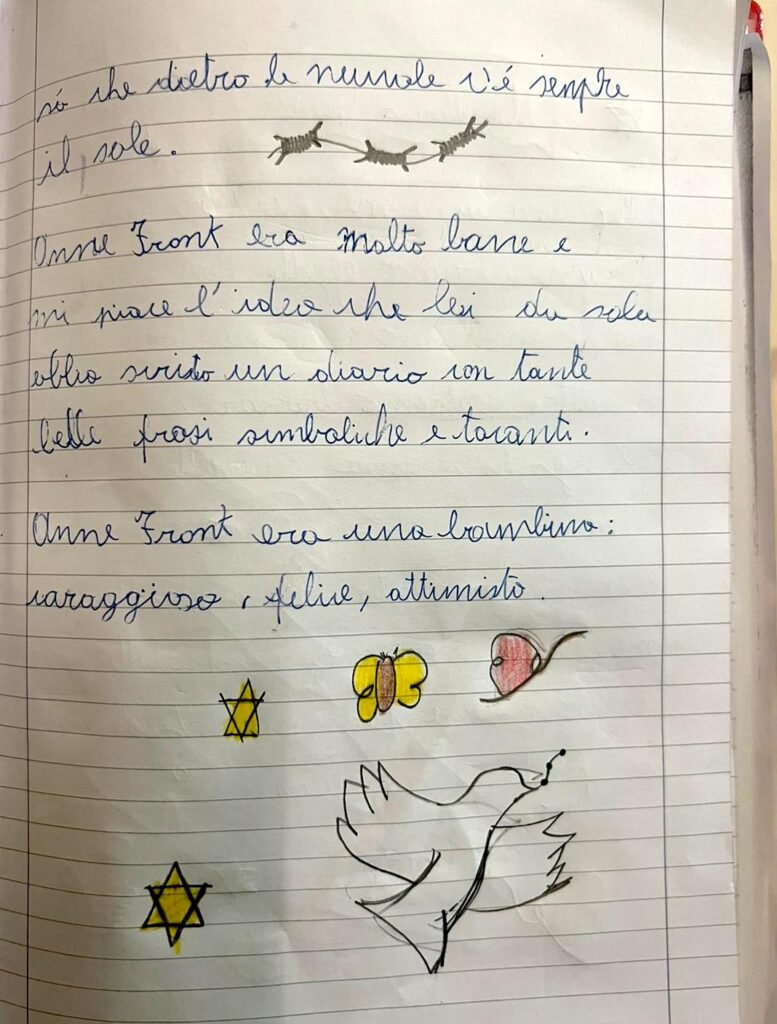 só che dietro le nuvole c'é senpre
il sole.
Anne Front era molto bane e
mi piace l'idea che lei da sola
abbia scritto un diario con tante
belle frasi simboliche e tocanti.
Anne Front era una bambina:
caraggiosa, felice, attimista.